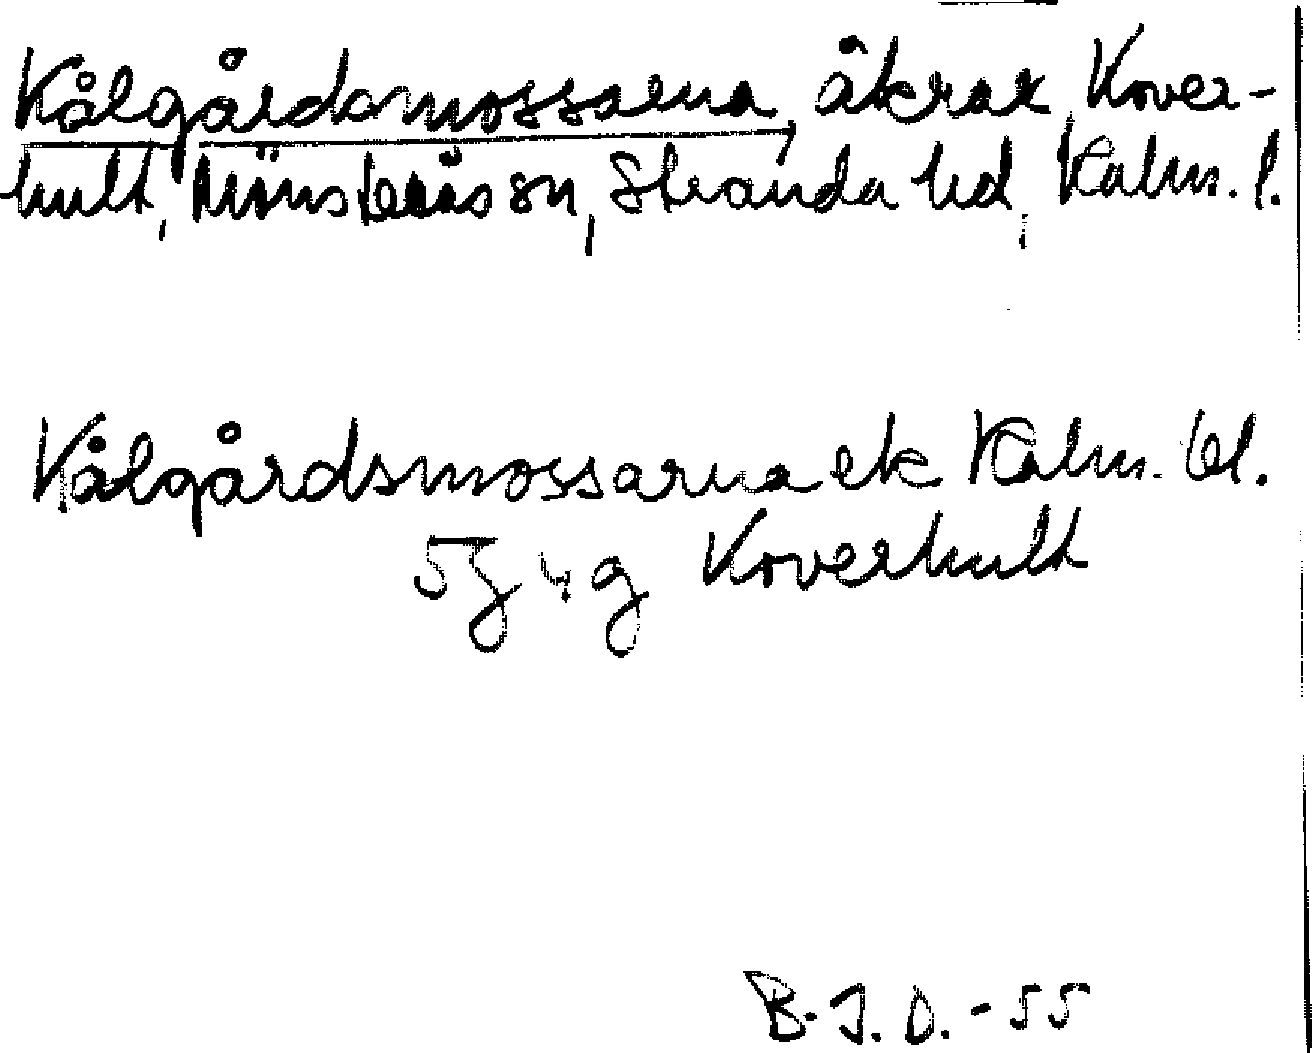 Kålgårdsmossarna, åkrar, Kover-
hult, Mönsterås sn, Stranda hd, Kalm. l.
Kålgårdsmossarna ek Kalm. bl.
5J 4g Koverhult
B.J.D.-55